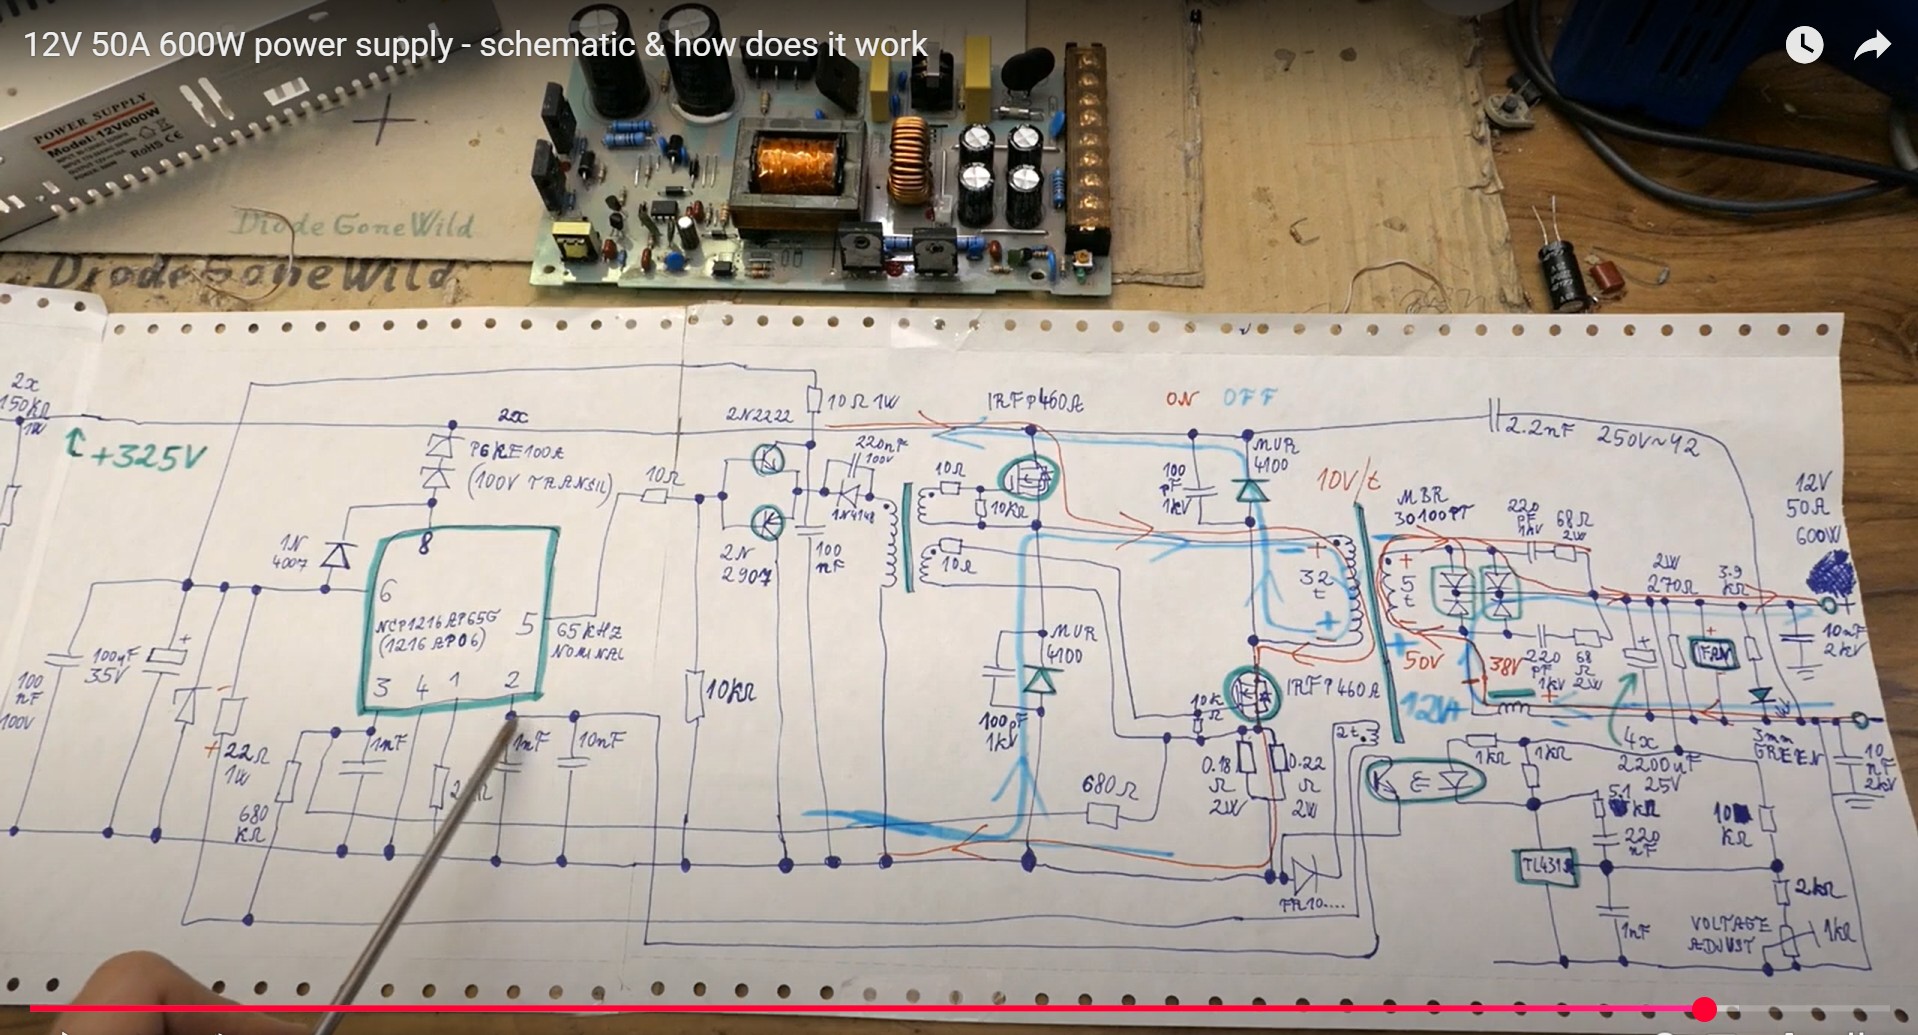 12V 50A 600W power supply - schematic & how does it work
POWER SUPPLY
Model:12V600W
RoHS CE
DiodeGoneWild
DiodeGoneWild
2x
150kΩ
1W
+325V
2x
P6KE100A
(100V TRANSIL)
1N
4007
8
6
NCP1216AP65G
(1216AP06)
5
3 4 1 2
65kHz
NOMINAL
100
nF
100V
100µF
35V
+
+
22Ω
1W
680
kΩ
1nF
1nF
10nF
10Ω
10kΩ
2N2222
2N
2907
10Ω 1W
220nF
100V
1N4148
100
nF
10Ω
10kΩ
10Ω
IRFP460A
ON OFF
MUR
4100
100
pF
1kV
MUR
4100
100pF
1kV
680Ω
10k
Ω
IRFP460A
0.18
Ω
2W
0.22
Ω
2W
FR10....
2t
10V/t
+
32
t
+
+
5
t
+
50V
38V
12V
+
+
MBR
30100PT
2.2nF 250V~Y2
220
pF
1kV
68Ω
2W
220
pF
1kV
68
Ω
2W
2W
270Ω
3.9
kΩ
+
FAN
+
4x
2200µF
25V
3mm
GREEN
12V
50A
600W
+
-
10nF
2kV
10
nF
2kV
1kΩ
1kΩ
5.1
kΩ
220
nF
10
kΩ
TL431
2kΩ
1nF
VOLTAGE
ADJUST
1kΩ